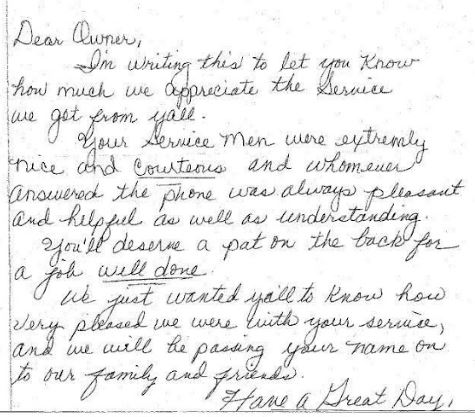 Dear Owner,
I'm writing this to let you know
how much we appreciate the Service
we got from yall.
Your Service Men were extremly
nice and courteous and whomever
answered the phone was always pleasant
and helpful as well as understanding.
You'll deserve a pat on the back for
a job well done.
We just wanted yall to know how
very pleased we were with your service,
and we will be passing your name on
to our family and friends.
Have a Great Day,